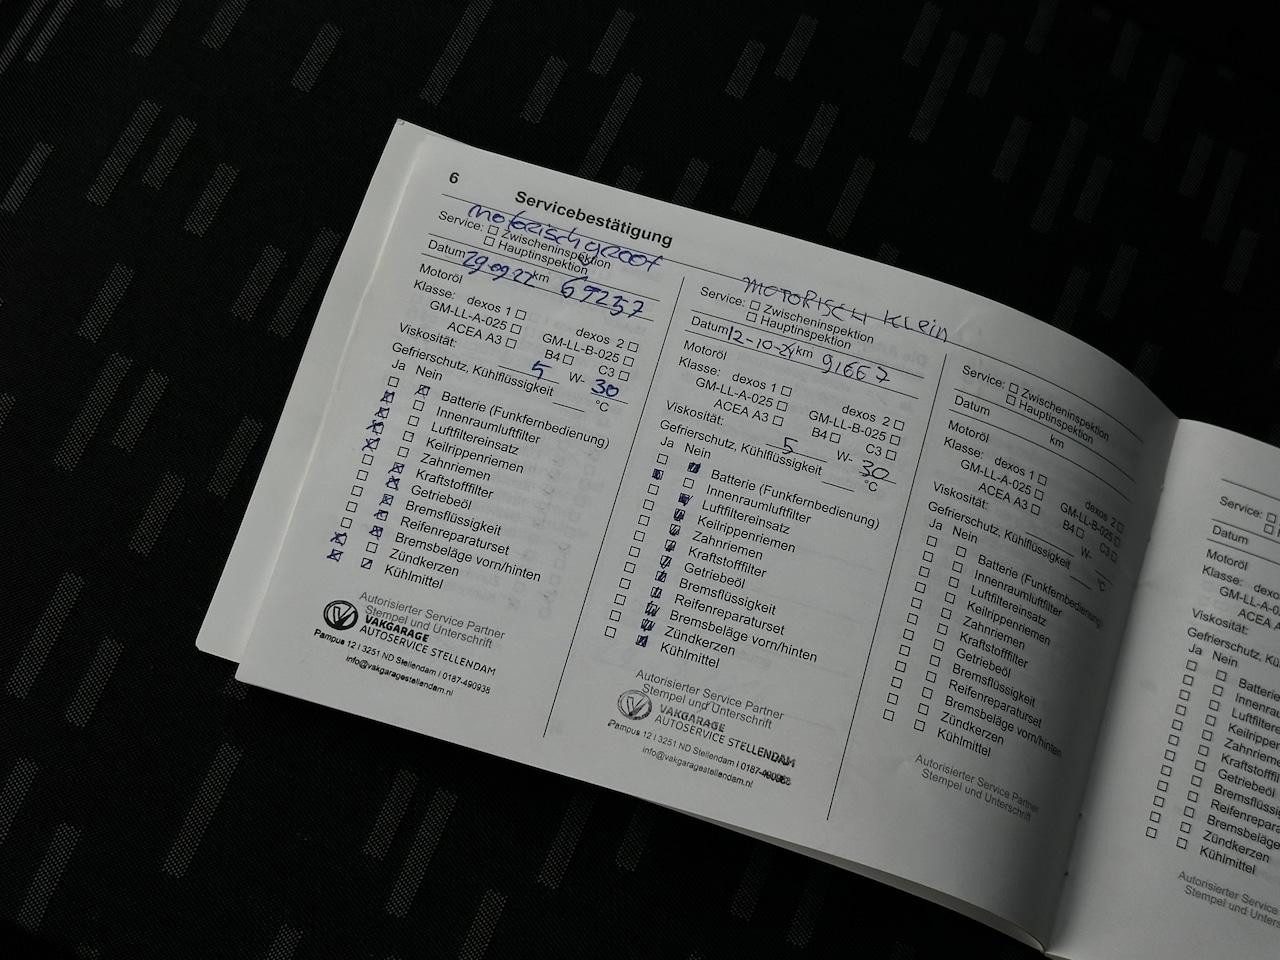 6
Servicebestätigung
motorisch groot
Service: Zwischeninspektion
Hauptinspektion
Datum 29 09 22 km 69237
Motoröl
Klasse: dexos 1 dexos 2
GM-LL-A-025 GM-LL-B-025
ACEA A3 B4 C3
Viskosität: 5 W- 30
Gefrierschutz, Kühlflüssigkeit °C
Ja Nein
Batterie (Funkfernbedienung)
Innenraumluftfilter
Luftfiltereinsatz
Keilrippenriemen
Zahnriemen
Kraftstofffilter
Getriebeöl
Bremsflüssigkeit
Reifenreparaturset
Bremsbeläge vorn/hinten
Zündkerzen
Kühlmittel
Autorisierter Service Partner
Stempel und Unterschrift
VAKGARAGE
AUTOSERVICE STELLENDAM
Pampus 12 I 3251 ND Stellendam I 0187-490938
info@vakgaragestellendam.nl
MOTORISCH KLein
Service: Zwischeninspektion
Hauptinspektion
Datum 12-10-24 km 91667
Motoröl
Klasse: dexos 1 dexos 2
GM-LL-A-025 GM-LL-B-025
ACEA A3 B4 C3
Viskosität: 5 W- 30
Gefrierschutz, Kühlflüssigkeit °C
Ja Nein
Batterie (Funkfernbedienung)
Innenraumluftfilter
Luftfiltereinsatz
Keilrippenriemen
Zahnriemen
Kraftstofffilter
Getriebeöl
Bremsflüssigkeit
Reifenreparaturset
Bremsbeläge vorn/hinten
Zündkerzen
Kühlmittel
Autorisierter Service Partner
Stempel und Unterschrift
VAKGARAGE
AUTOSERVICE STELLENDAM
Pampus 12 I 3251 ND Stellendam I
info@vakgaragestellendam.nl
Service: Zwischeninspektion
Hauptinspektion
Datum km
Motoröl
Klasse: dexos 1 dexos 2
GM-LL-A-025 GM-LL-B-025
ACEA A3 B4 C3
Viskosität: W-
Gefrierschutz, Kühlflüssigkeit °C
Ja Nein
Batterie (Funkfernbedienung)
Innenraumluftfilter
Luftfiltereinsatz
Keilrippenriemen
Zahnriemen
Kraftstofffilter
Getriebeöl
Bremsflüssigkeit
Reifenreparaturset
Bremsbeläge vorn/hinten
Zündkerzen
Kühlmittel
Autorisierter Service Partner
Stempel und Unterschrift
Service:
Datum
Motoröl
Klasse: dexos
GM-LL-A-0
ACEA
Viskosität:
Gefrierschutz, Kü
Ja Nein
Batterie
Innenrau
Luftfilter
Keilrippen
Zahnrieme
Kraftstofffi
Getriebeöl
Bremsflüssig
Reifenrepara
Bremsbeläge
Zündkerzen
Kühlmittel
Autorisierter S
Stempel und